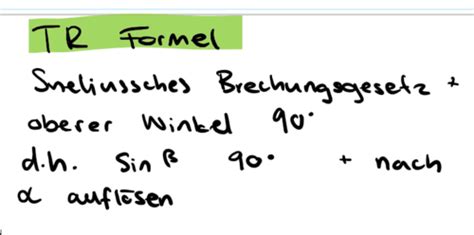 TR Formel
Sneliussches Brechungsgesetz +
oberer Winkel 90°
d.h. Sin β 90° + nach
α auflösen